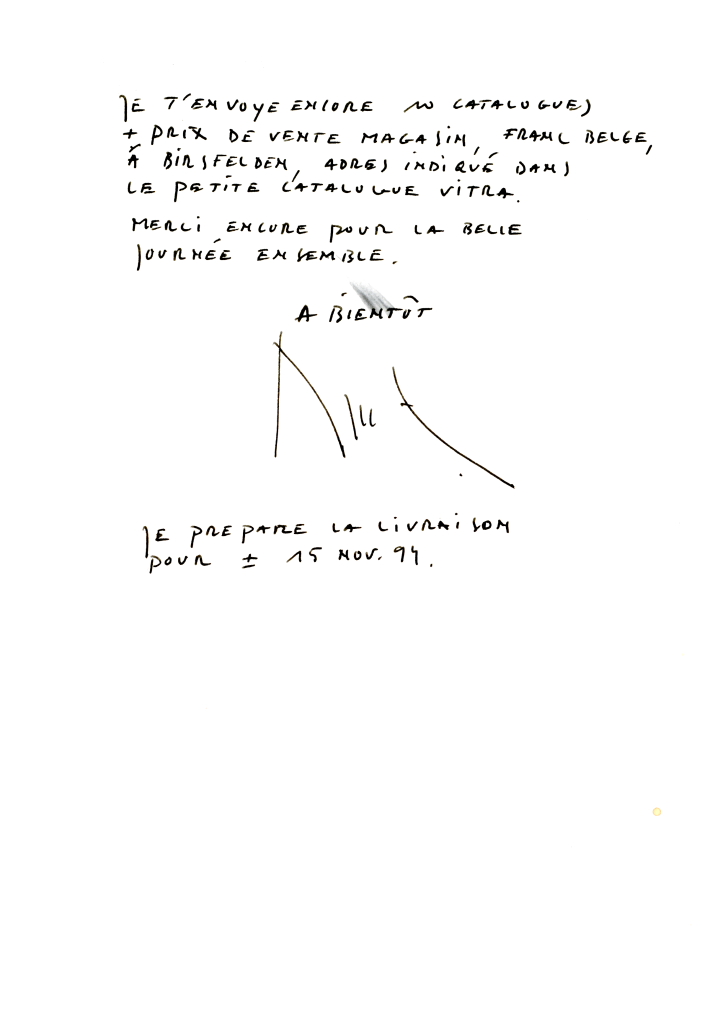 JE T'ENVOYE ENCORE 10 CATALOGUES
+ PRIX DE VENTE MAGASIN, FRANC BELGE,
À BIRSFELDEN, ADRES INDIQUÉ DANS
LE PETITE CATALOGUE VITRA.
MERCI ENCORE POUR LA BELLE
JOURNÉE ENSEMBLE.
A BIENTÔT
JE PREPARE LA LIVRAISON
POUR ± 15 NOV. 94.